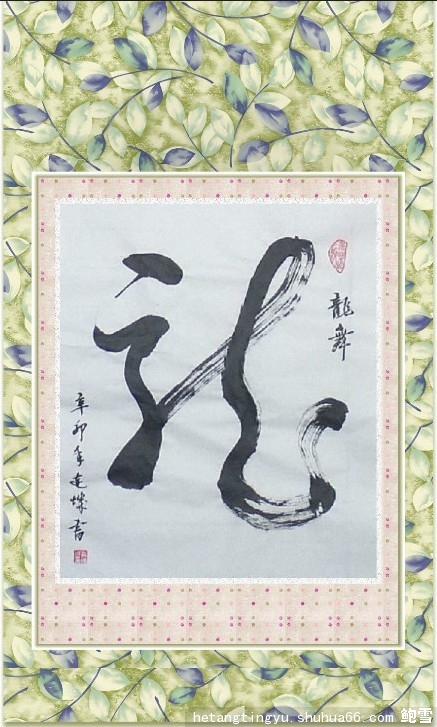 龍
龍舞
辛卯年建燦書
hetangtingyu.shuhua66.com 鲍雪